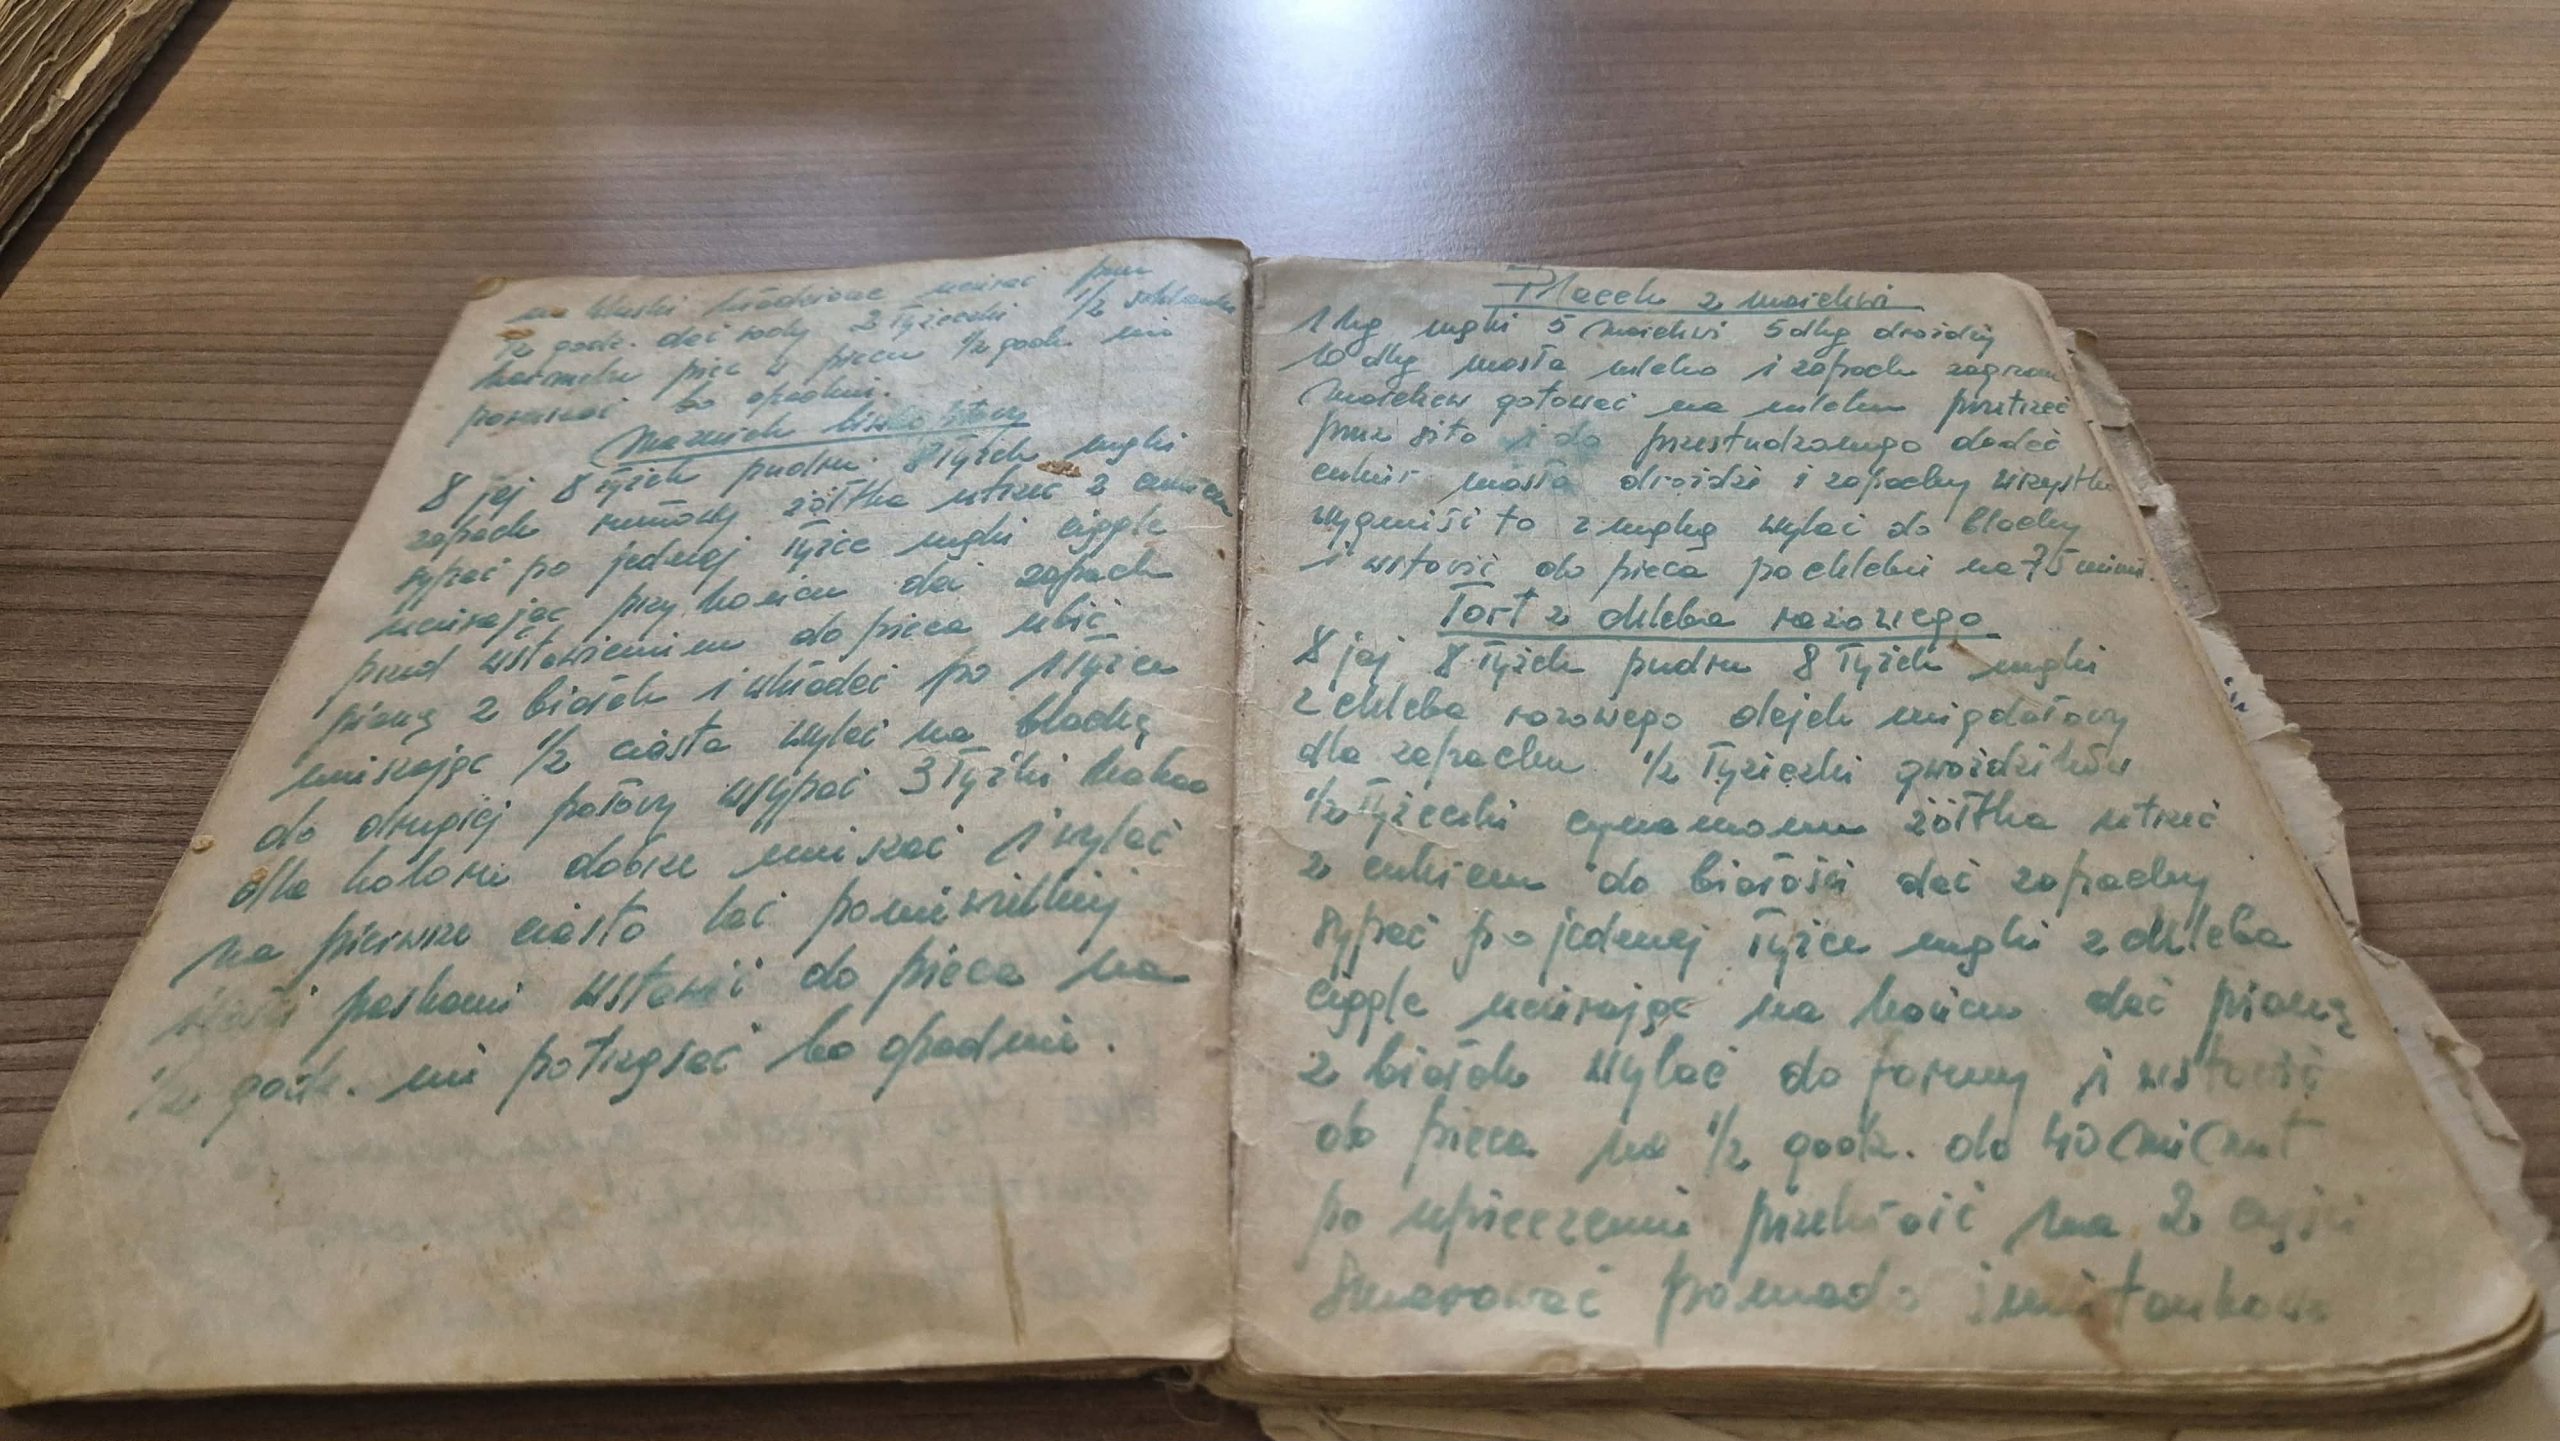 na kluski kładzione ucierać przez
1/2 godz. dać sody 2 łyżeczki 1/2 szklanki
piec w piecu 1/2 godz. nie
poruszać bo opadnie.
Mazurek biszkoptowy
8 jaj 8 łyżek pudru 8 łyżek mąki
zapach rumowy żółtka utrzeć z cukrem
sypać po jednej łyżce mąki ciągle
ucierając przy końcu dać zapach
przed wstawieniem do pieca ubić
pianę z białek i wkładać po 1 łyżce
mieszając 1/2 ciasta wylać na blachę
do drugiej połowy wsypać 3 łyżki kakao
dla koloru dobrze mieszać i wylać
na pierwsze ciasto lać po
paskami wstawić do pieca na
1/2 godz. nie potrząsać bo opadnie.
Placek z marchwi
1 kg mąki 5 marchwi 5 dkg drożdży
10 dkg masła mleka i zapach
Marchew gotować na mleku przetrzeć
przez sito i do przestudzonego dodać
cukier masła drożdże i zapachy wszystko
wygnieść to z mąką wylać do blachy
i wstawić do pieca po chlebie na 75 minut.
Tort z chleba razowego
8 jaj 8 łyżek pudru 8 łyżek mąki
z chleba razowego olejek migdałowy
dla zapachu 1/2 łyżeczki gwoździków
1/2 łyżeczki cynamonu żółtka utrzeć
z cukrem do białości dać zapachy
sypać po jednej łyżce mąki z chleba
ciągle ucierając na końcu dać pianę
z białek wylać do formy i wstawić
do pieca na 1/2 godz. do 40 minut
po upieczeniu przekroić na 2 części
smarować pomadą śmietankową